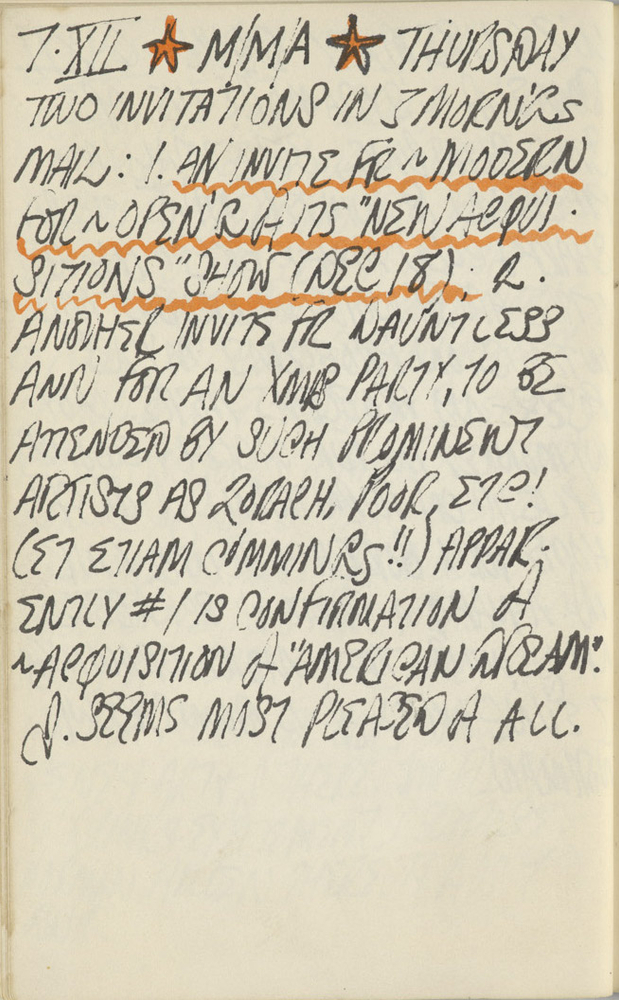 7·XII ★ M/M/A ★ THURSDAY
TWO INVITATIONS IN S MORN'GS
MAIL: 1. AN INVITE FR ~ MODERN
FOR ~ OPEN'G OF ITS "NEW ACQUI-
SITIONS" SHOW (DEC 18); 2.
ANOTHER INVITE FR DAUNTLESS
ANN FOR AN XMAS PARTY, TO BE
ATTENDED BY SUCH PROMINENT
ARTISTS AS ZORACH, POOR, ETC!
(ET ETIAM CUMMINGS!!) APPAR-
ENTLY #1 IS CONFIRMATION OF
~ ACQUISITION OF "AMERICAN DREAM".
J. SEEMS MOST PLEASED OF ALL.